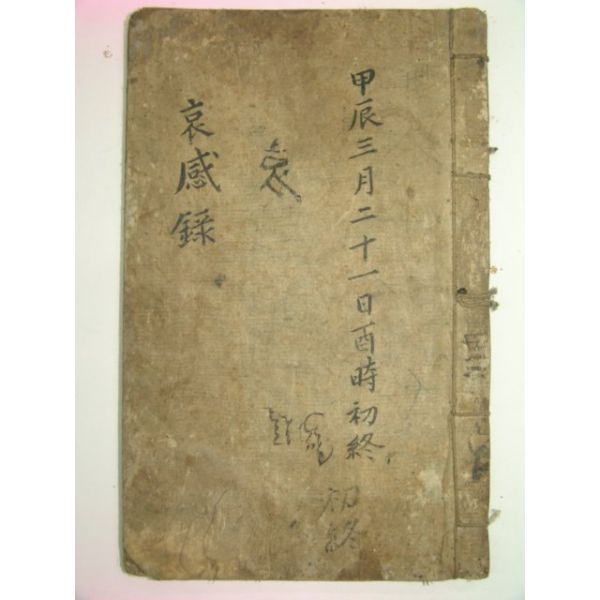 甲辰三月二十一日酉時初終
初終
哀
哀感録